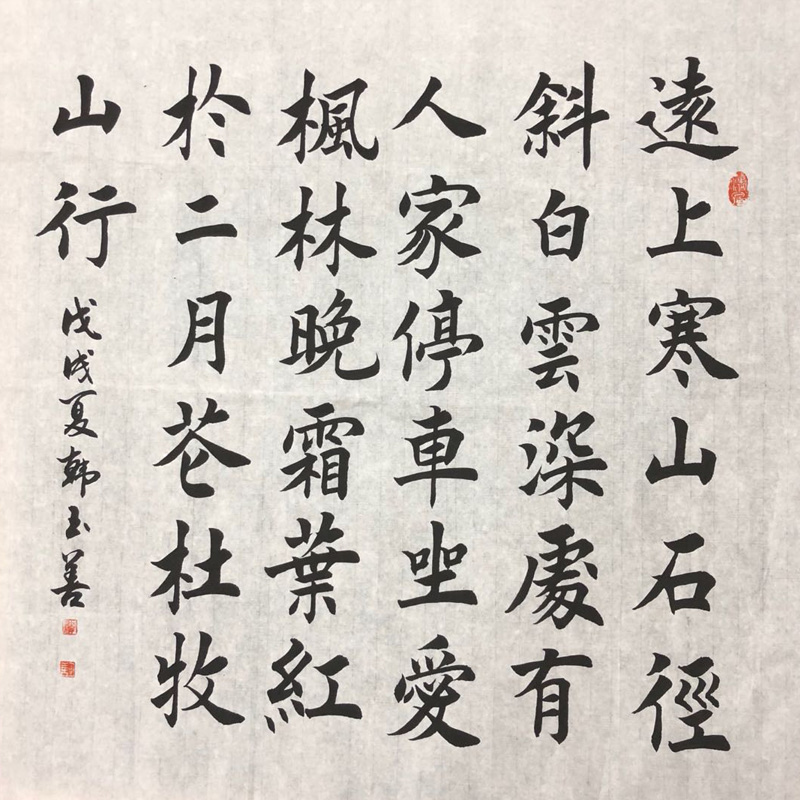 遠上寒山石徑
斜白雲深處有
人家停車坐愛
楓林晚霜葉紅
於二月花杜牧
山行
戊戌夏韩玉善